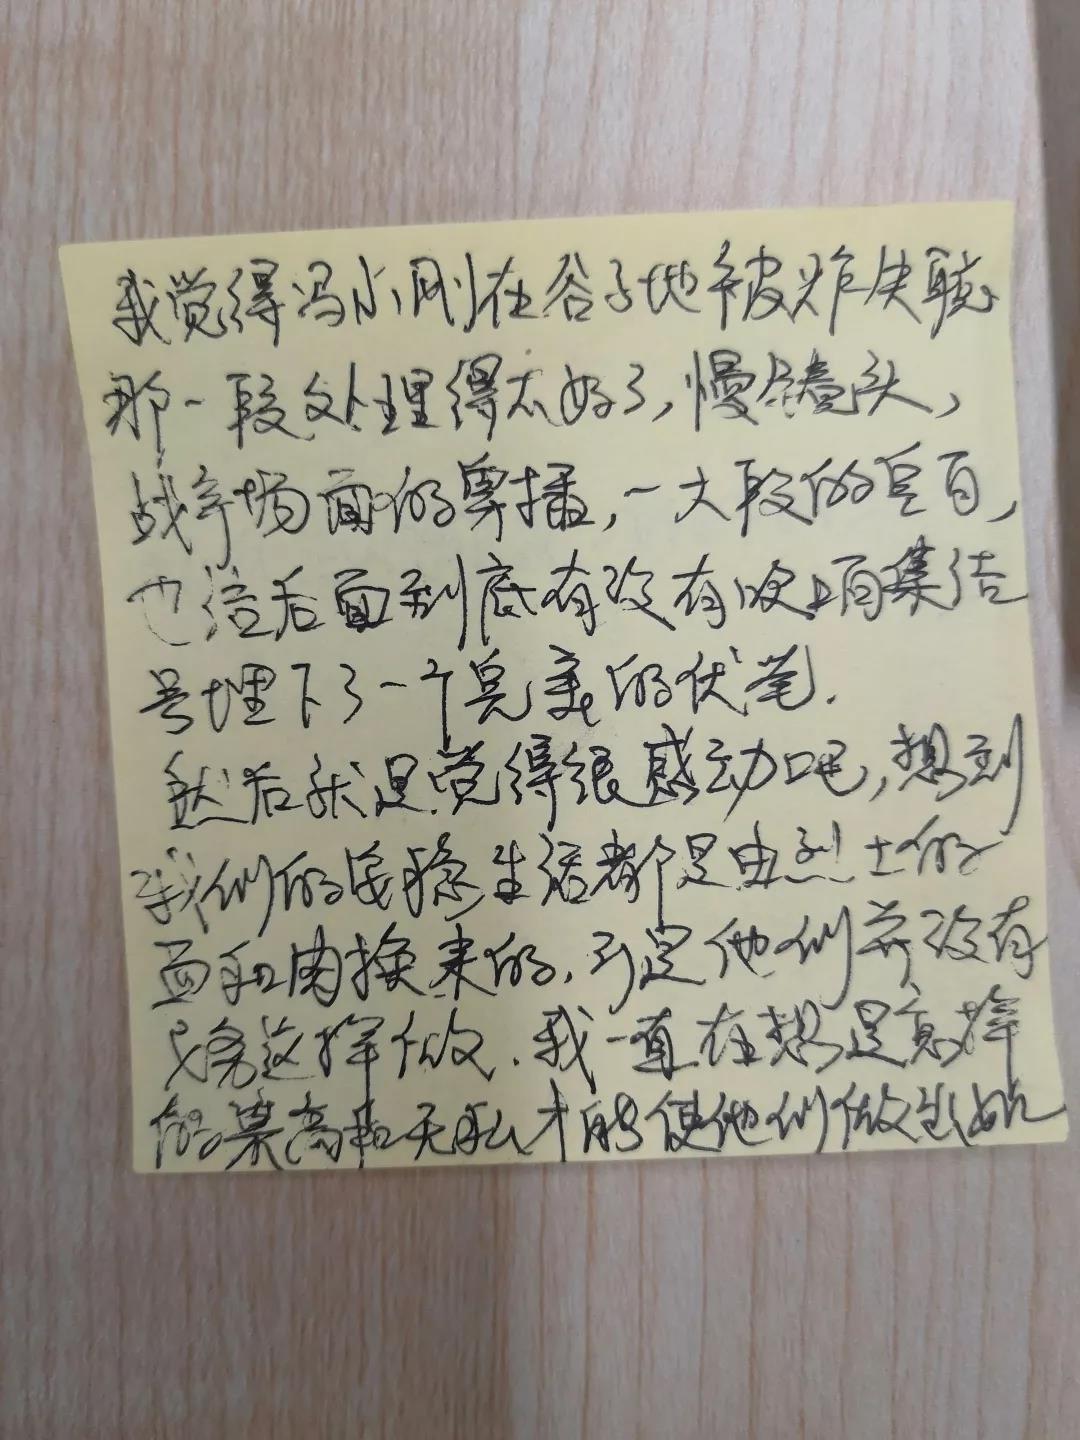 我觉得冯小刚在谷子地被炸失聪
那一段处理得太好了，慢镜头，
战争场面的穿播，一大段的空白，
也给后面到底有没有吹响集结
号埋下了一个完美的伏笔.
然后就是觉得很感动吧，想到
我们的安稳生活都是由烈士的
血和肉换来的，可是他们并没有
义务这样做.我一直在想是怎样
的崇高和无私才能使他们做出如此